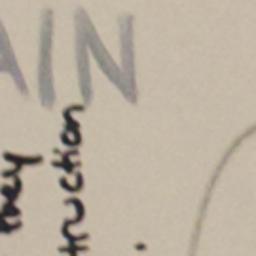 AIN
they
truction